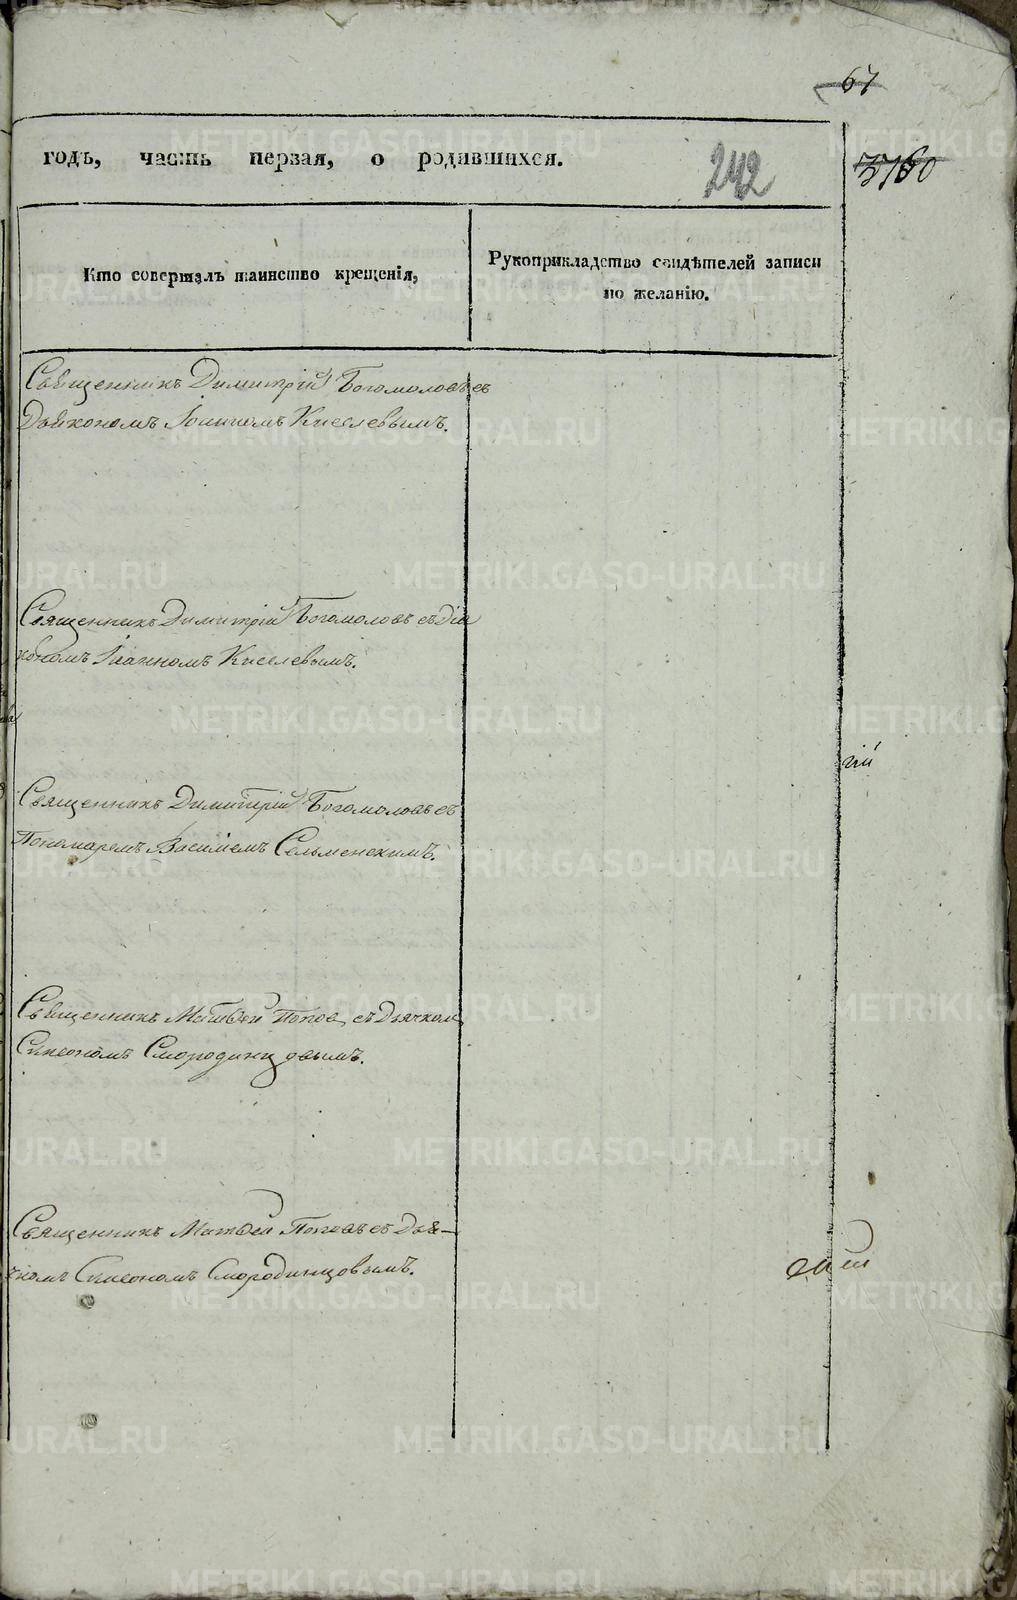 67
годъ, часть первая, о родившихся.
242
Кто совершалъ таинство крещенія,
Рукоприкладство свидѣтелей записи
по желанію.
Священникъ Димитрій Богомоловъ съ
Діякономъ Іоанномъ Киселевымъ.
Священникъ Димитрій Богомоловъ съ Діа
кономъ Іоанномъ Киселевымъ.
гій
Священникъ Димитрій Богомоловъ съ
Пономаремъ Василіемъ Сельменскимъ.
Священникъ Матвѣй Попов, съ Дьячком
Симеономъ Смородинцовымъ.
Священникъ Матвей Поповъ съ Дья-
чкомъ Симеономъ Смородинцовымъ.
METRIKI.GASO-URAL.RU